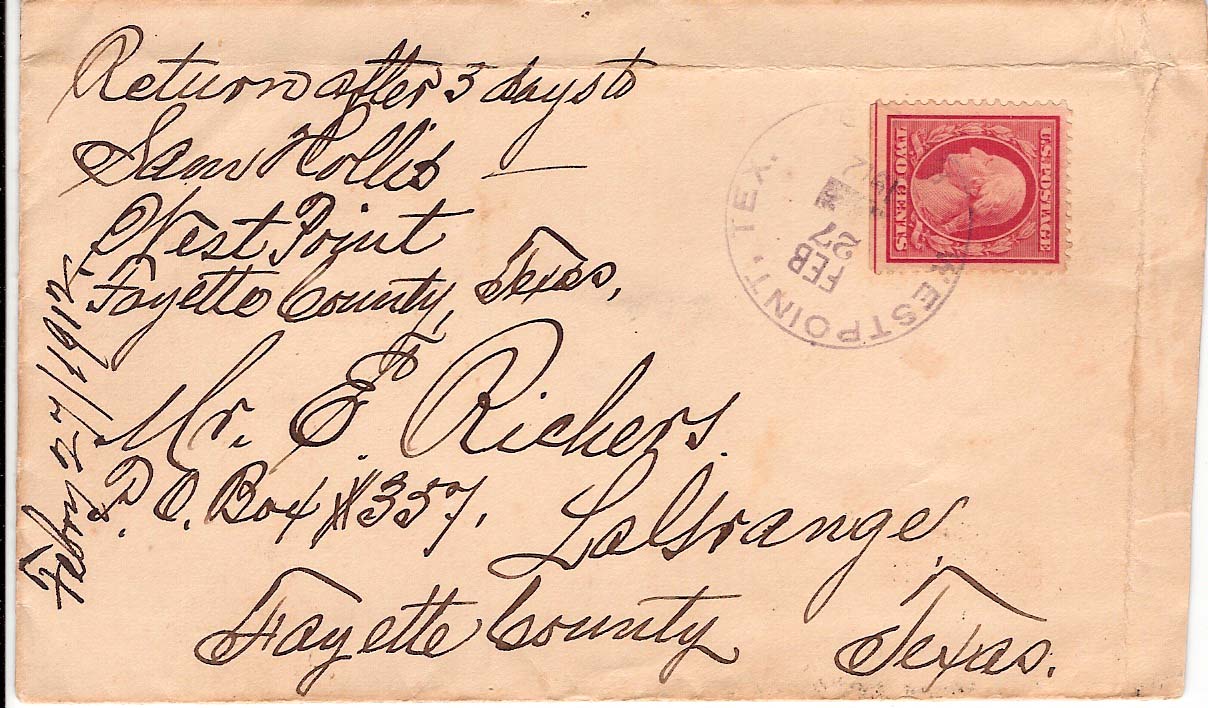 Return after 3 days to
Sam Hollis
West Point
Fayette County, Texas,
Febry 27/1912.
WESTPOINT. TEX.
FEB
27
1912
U.S. POSTAGE
TWO CENTS
Mr. E. F. Richers.
P. O. Box #357.
LaGrange,
Fayette County Texas.